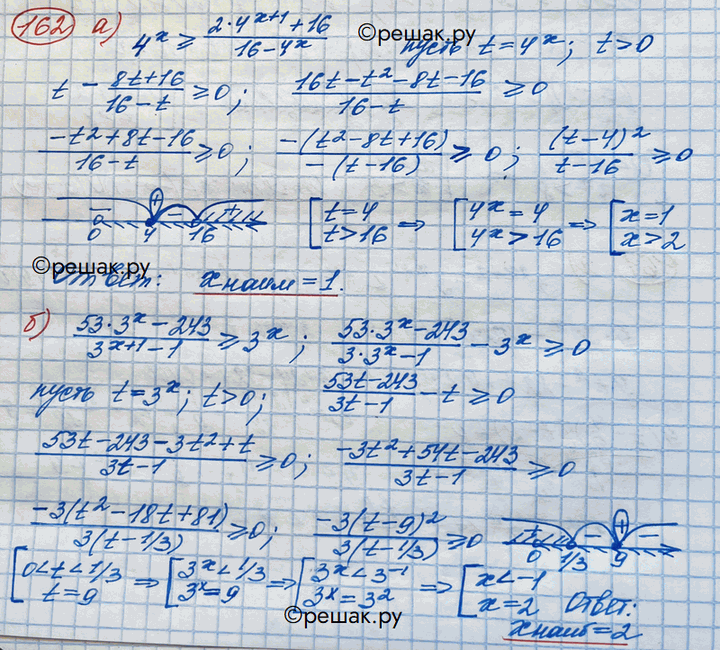 162 а) 4^x ≥ (2·4^(x+1) + 16)/(16 − 4^x) ©решак.ру пусть t = 4^x; t > 0
t − (8t+16)/(16−t) ≥ 0; (16t − t² − 8t − 16)/(16 − t) ≥ 0
(−t² + 8t − 16)/(16 − t) ≥ 0; (−(t² − 8t + 16))/(−(t − 16)) ≥ 0; (t − 4)²/(t − 16) ≥ 0
− + − + 0 4 16 [t = 4 t > 16 ⇒ [4^x = 4 4^x > 16 ⇒ [x = 1 x > 2
©решак.ру
Ответ: x наим = 1.
б) (53·3^x − 243)/(3^(x+1) − 1) ≥ 3^x; (53·3^x − 243)/(3·3^x − 1) − 3^x ≥ 0
пусть t = 3^x; t > 0; (53t − 243)/(3t − 1) − t ≥ 0
(53t − 243 − 3t² + t)/(3t − 1) ≥ 0; (−3t² + 54t − 243)/(3t − 1) ≥ 0
(−3(t² − 18t + 81))/(3(t − 1/3)) ≥ 0; (−3(t − 9)²)/(3(t − 1/3)) ≥ 0 + − + − 0 1/3 9
[0 < t < 1/3 t = 9 ⇒ [3^x < 1/3 3^x = 9 ⇒ [3^x < 3^−1 3^x = 3² ⇒ [x < −1 x = 2 Ответ:
©решак.ру
x наиб = 2